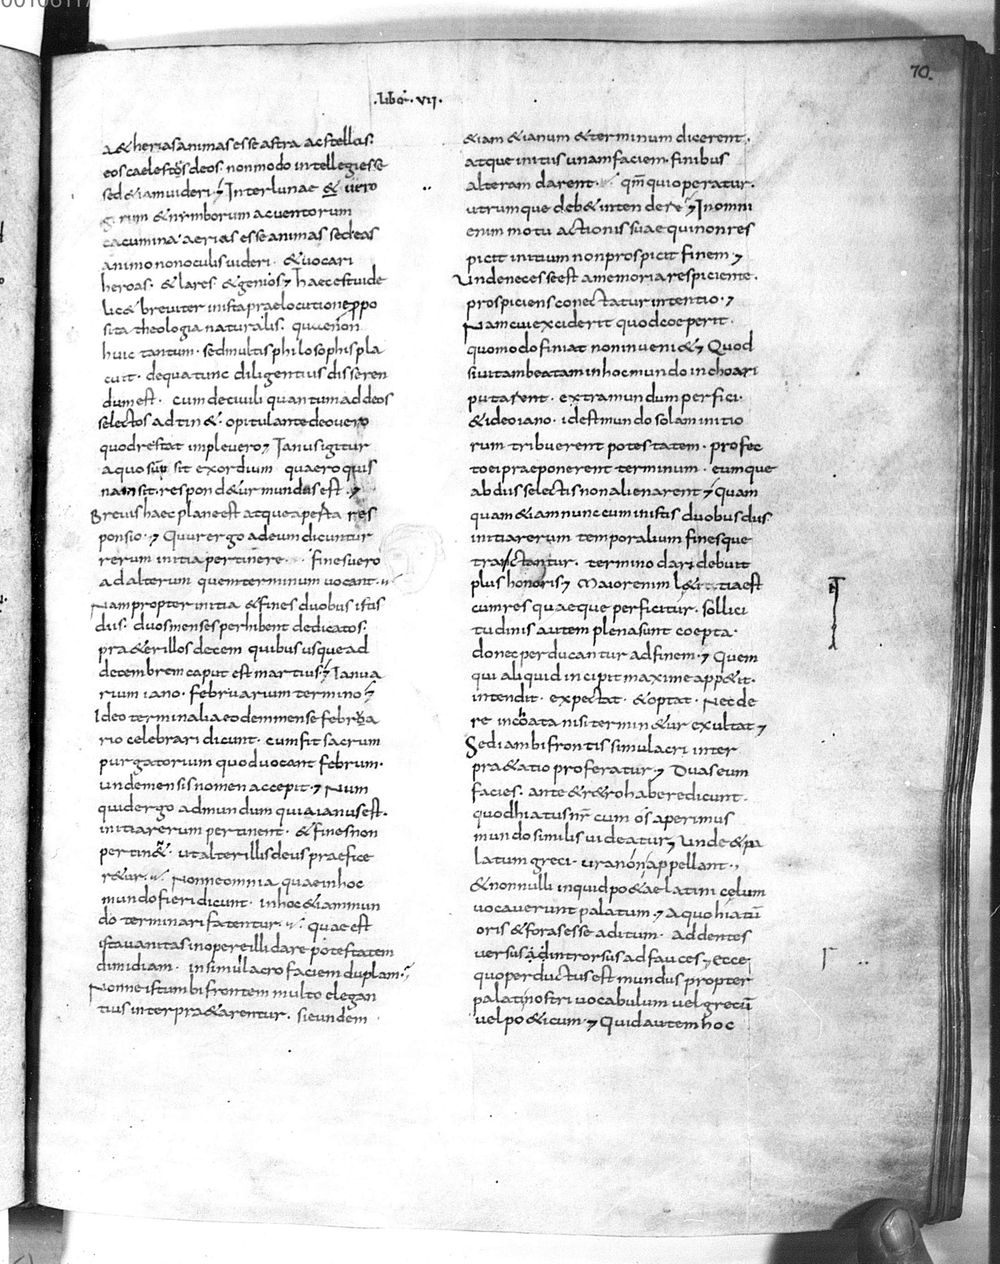 70.
.lib&#x305;. VII.
a&heriasanimasesseastra acstellas.
eos caelestes deos. nonmodo intellegiesse
sed&iamuideri; Interlunae & uero
gyrum &nymborum acuentorum
cacumina aerias esseanimas sedeas
animo nonoculis uideri. &uocari
heroas. &lares &genios; haecestuide
lic& breuiter inistapraelocutione propo
sita theologia naturalis. quaenon
huic tantum. sedmultisphilosophispla
cuit. dequatunc diligentius disseren
dumest. cum deciuili quantumaddeos
selectos adtin&. opitulantedeouero
quodrestat impleuero; Ianusigitur
aquo sup̄ sit exordium quaeroquis
namsit. respond&ur mundus est.;
Breuis haec planeest atqueaperta res
ponsio.; Quur ergo adeum dicuntur
rerum initia pertinere finesuero
adalterum quemterminum uocant.
Nampropter initia &fines duobus istis
diis. duosmenses perhibent dedicatos.
pra&erillos decem quibus usquead
decembrem caput est martius; Ianua
rium iano. februarium termino;
Ideo terminalia eodemmense februa
rio celebrari dicunt. cumfit sacrum
purgatorium quoduocant februm.
undemensisnomen accepit.; Num
quidergo admundum quiaianusest.
initiarerum pertinent. &finesnon
pertin&. utalterillisdeus praefice
r&ur. Nonneomnia quaeinhoc
mundofieri dicunt. inhoc&iammun
do terminari fatentur. quaeest
istauanitas inopereilli dare potestatem
dimidiam. insimulacro faciem duplam.
Nonneistumbifrontem multo elegan
tius interpra&arentur. sieundem
&iam &ianum &terminum dicerent.
atque initiis unamfaciem. finibus
alteram darent. qm̄ quioperatur.
utrumque deb& intendere; Inomni
enim motu actionis suae quinonres
picit initium nonprospicit finem;
Undenecesseest amemoriarespiciente.
prospiciens conectatur intentio.;
Namcuiexciderit quodcoeperit.
quomodo finiat noninueni&; Quod
siuitambeatam inhocmundo inchoari
putarent. extramundum perfici.
&ideoiano. idestmundo solaminitio
rum tribuerent potestatem. profec
toeipraeponerent terminum. eumque
abdiisselectisnonalienarent; Quam
quam &iamnunc cum inistis duobus diis.
initiarerum temporalium finesque
tractantur. termino dari debuit
plus honoris; Maiorenim l&itiaest
cumres quaeque perficitur. sollici
tudinis autem plenasunt coepta.
donecperducantur adfinem.; Quem
qui aliquid incipit maximeapp&it.
intendit. expectat. &optat. Necde
re inchoata nisi termin&ur exultat;
Sediambifrontissimulacri inter
pra&atio proferatur; Duaseum
facies. ante &retrohaberedicunt.
quodhiatusnr̄ cum os aperimus
mundosimilis uideatur; Unde&pa
latumgreci. uranon appellant.;
&nonnulli inquid po&ae latini cęlum
uocauerunt palatum.; Aquohiatū
oris &forasesse aditum. addentes
uersus&introrsus adfauces; ecce
quoperductusest mundus propter
palatinostri uocabulum uelgrecū
uelpo&icum.; Quidautemhoc